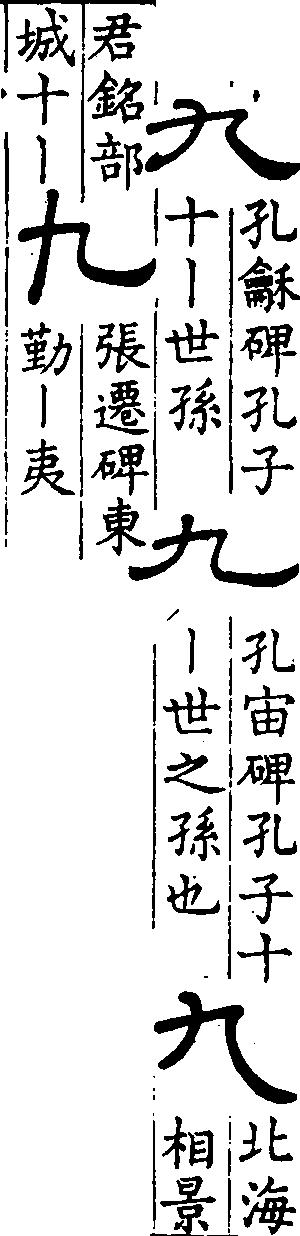 九
孔龢碑孔子
十丨世孫
九
孔宙碑孔子十
丨世之孫也
九
北海
相景
君銘部
城十丨
九
張遷碑東
勤丨夷